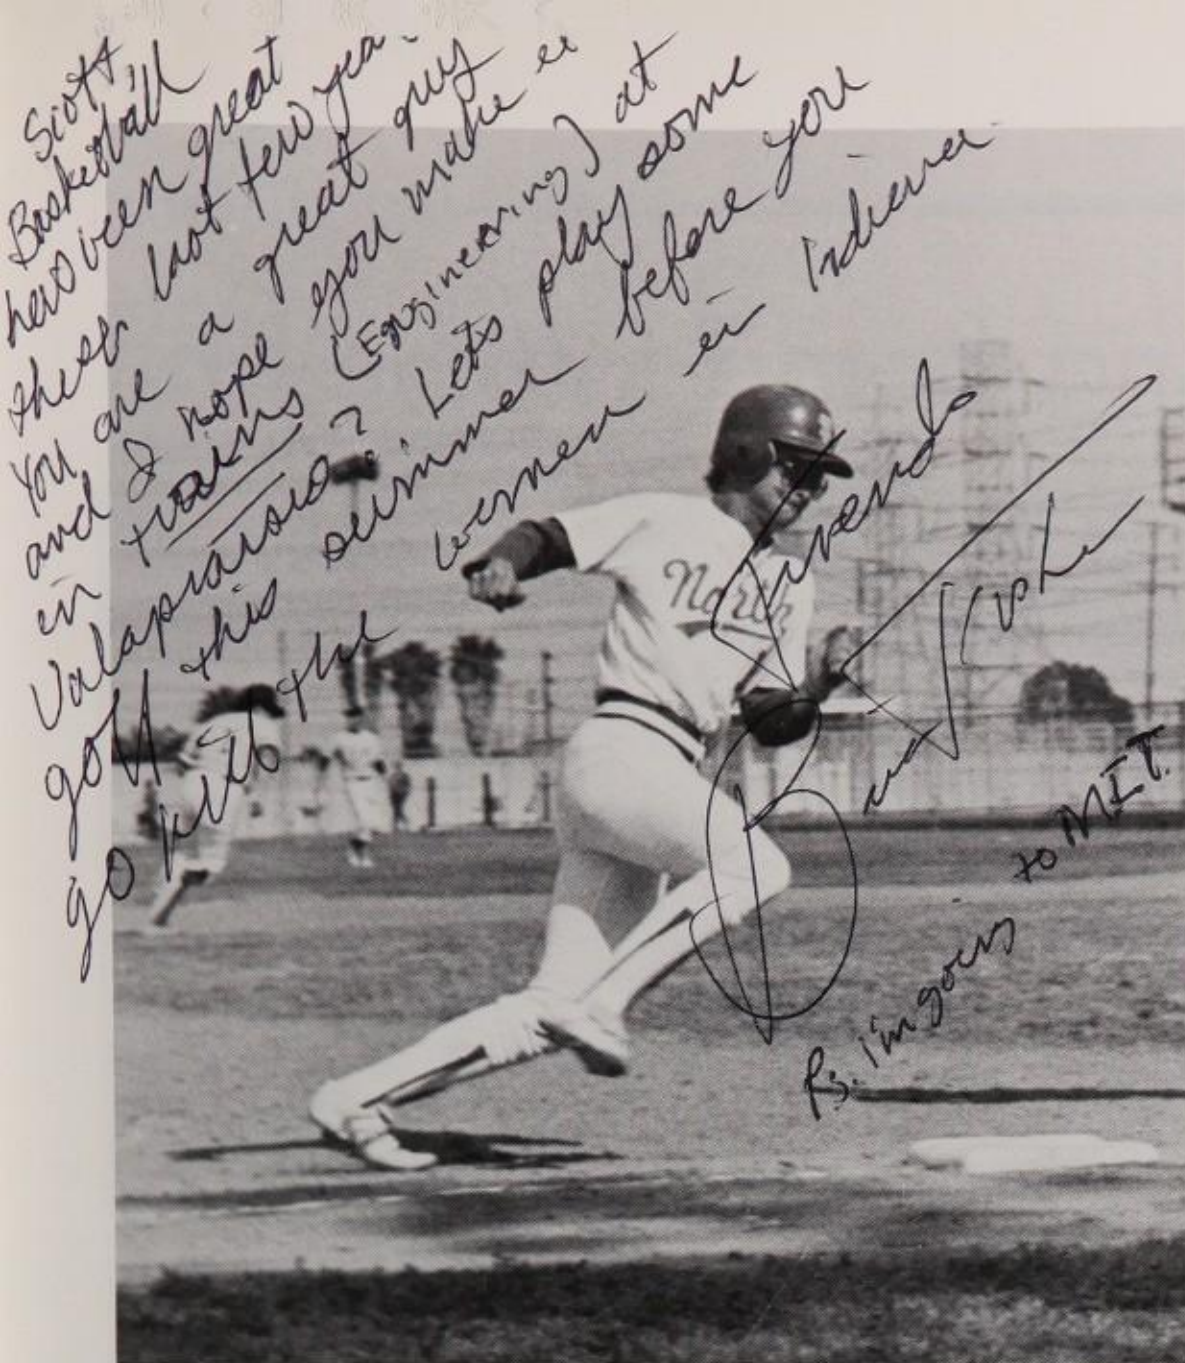 Scott,
Basketball
has been great
these last few
You are a great guy
and I hope you make
in trains (Engineering) at
Valapraiso? Lets play some
golf this summer before you
go kill the women in Indiana
Friends
North
Ps. I'm going to M.I.T.